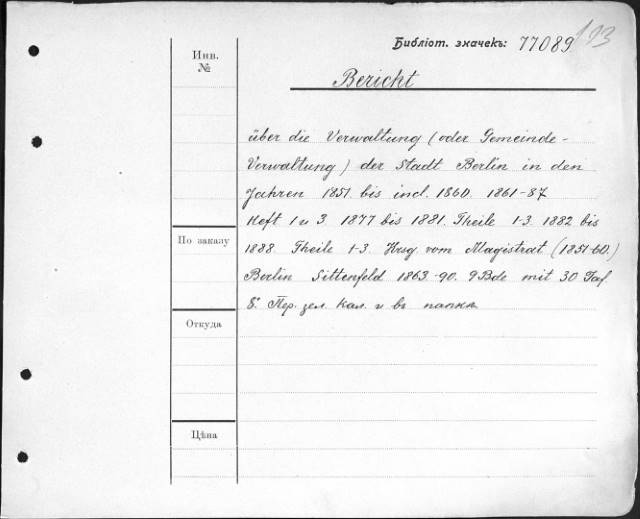 Библіот. значекъ: 77089 193
Инв.
№
Bericht
über die Verwaltung (oder Gemeinde-
Verwaltung) der Stadt Berlin in den
Jahren 1851. bis incl. 1860. 1861-87
Heft 1 u 3. 1877 bis 1881. Theile 1-3. 1882 bis
По заказу
1888. Theile 1-3. Hrsg vom Magistrat (1851-60.)
Berlin Sittenfeld 1863-90. 9 Bde mit 30 Taf.
8°. Пер. зел. кал. и въ папкѣ
Откуда
Цѣна